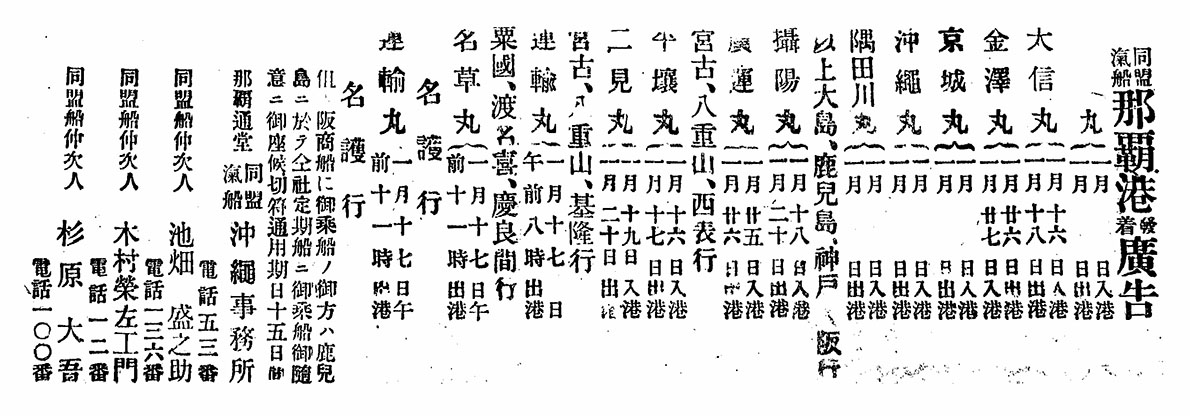 同盟汽船那覇港發着廣告
丸 一月 日入港 一月 日出港
大信丸 一月十六日入港 一月十八日出港
金澤丸 一月廿六日入港 一月廿七日出港
京城丸 一月 日入港 一月 日出港
沖繩丸 一月 日入港 一月 日出港
隅田川丸 一月 日入港 一月 日出港
以上大島、鹿兒島、神戸 阪行
攝陽丸 一月十八日入港 一月二十日出港
廣運丸 一月廿五日入港 一月廿六日出港
宮古、八重山、西表行
平壤丸 一月十六日入港 一月十七日出港
二見丸 一月十九日入港 一月二十日出港
宮古、八重山、基隆行
運輸丸 一月十七日 午前八時出港
粟國、渡名喜、慶良間行
名草丸 一月十七日午前十一時出港
名護行
運輸丸 一月十七日午前十一時出港
名護行
但、阪商船に御乘船ノ御方ハ鹿兒
島ニ於テ仝社定期船ニ御乘船御隨
意ニ御座候、切符通用期日十五日間
那覇通堂 同盟汽船 沖繩事務所
電話五三番
同盟船仲次人 池畑盛之助
電話一三六番
同盟船仲次人 木村榮左工門
電話一二番
同盟船仲次人 杉原大吾
電話一〇〇番